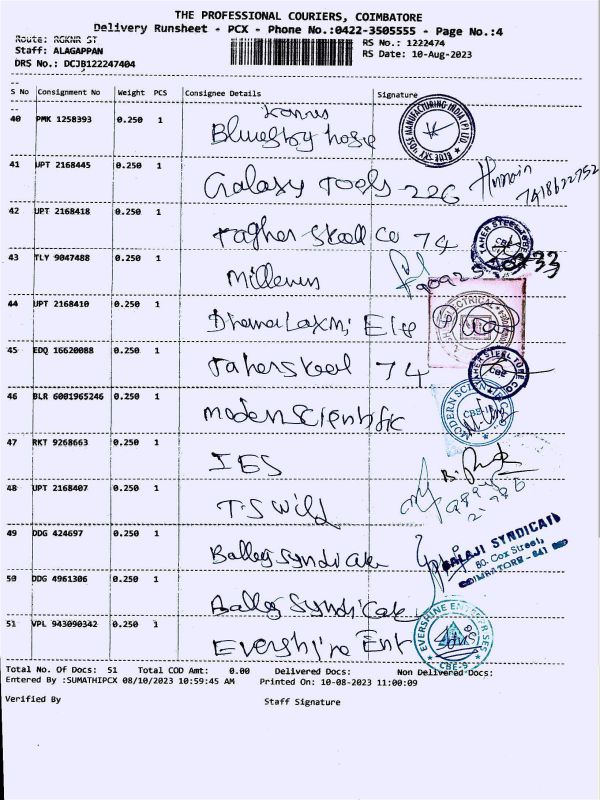 THE PROFESSIONAL COURIERS, COIMBATORE
Delivery Runsheet - PCX - Phone No.:0422-3505555 - Page No.:4
Route: RGKNR ST
RS No.: 1222474
Staff: ALAGAPPAN
RS Date: 10-Aug-2023
DRS No.: DCJB122247404
S No Consignment No Weight PCS Consignee Details Signature
40 PMK 1258393 0.250 1 Bluesky hose
HOSE MANUFACTURING INDIA (P) LTD. BLUE SKY
41 UPT 2168445 0.250 1 Galaxy Tools 226
42 UPT 2168418 0.250 1 Steel Co 74
TAHER STEEL TUBE CO. CBE
43 TLY 9047488 0.250 1
44 UPT 2168410 0.250 1 Dhanalaxmi Ele
ELECTRICAL
45 EDQ 16620088 0.250 1 Taher steel 74
TAHER STEEL TUBE CO. CBE
46 BLR 6001965246 0.250 1 Modern Scientific
MODERN SCIENTIFIC CBE-1
47 RKT 9268663 0.250 1 IES
48 UPT 2168407 0.250 1 T.S Wild
49 DDG 424697 0.250 1 Syndicate
BALAJI SYNDICATE
80, Cox Street,
COIMBATORE - 641
50 DDG 4961306 0.250 1 Syndicate
51 VPL 943090342 0.250 1 Evershine Ent
EVERSHINE ENTERPRISES CBE-9
Total No. Of Docs: 51 Total COD Amt: 0.00 Delivered Docs: Non Delivered Docs:
Entered By :SUMATHIPCX 08/10/2023 10:59:45 AM Printed On: 10-08-2023 11:00:09
Verified By Staff Signature